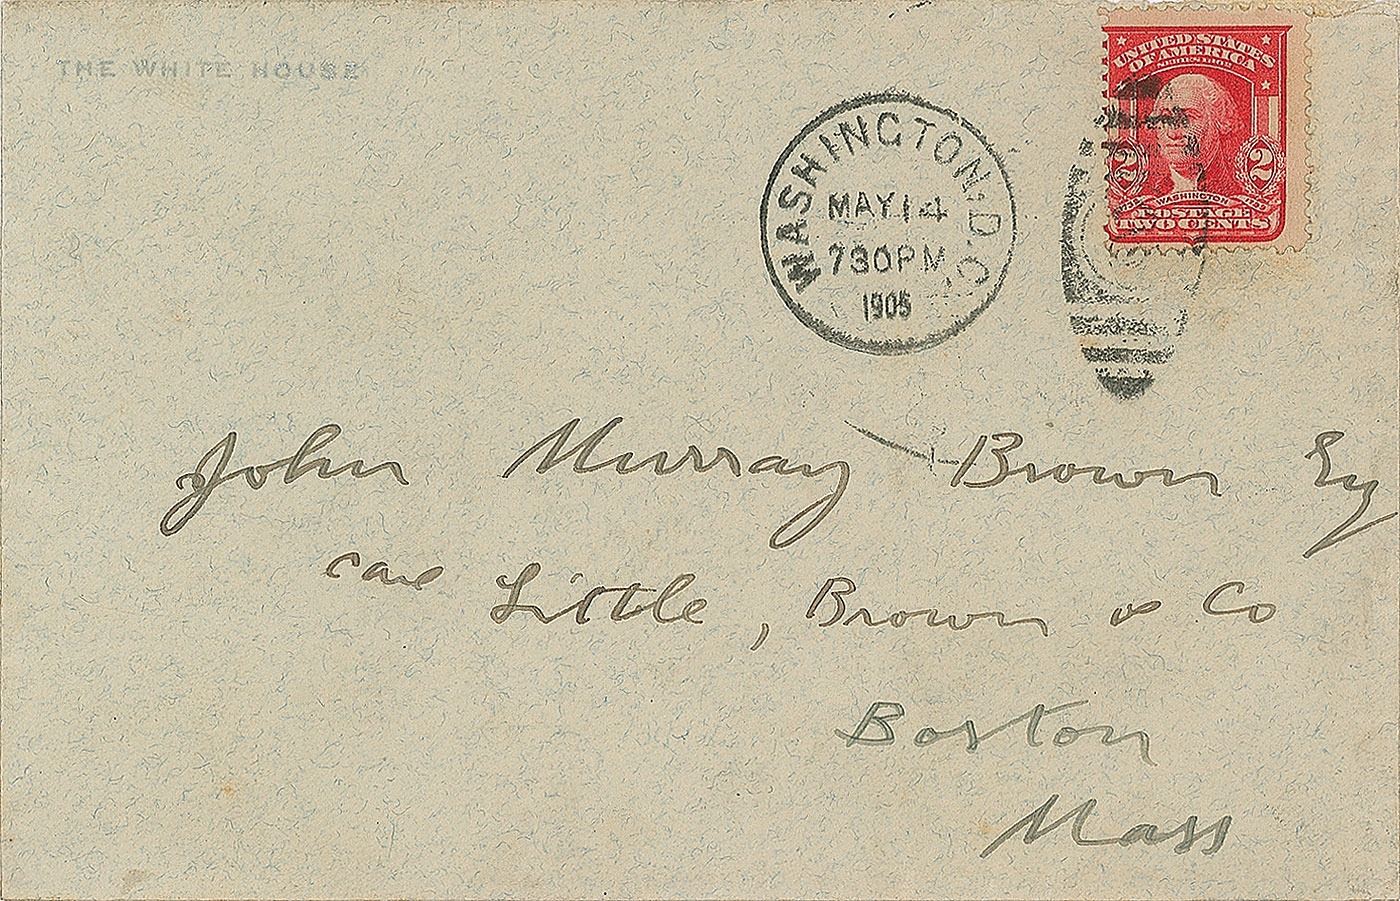 THE WHITE HOUSE
UNITED STATES
OF AMERICA
SERIES 1902
2 2
WASHINGTON
POSTAGE
TWO CENTS
WASHINGTON, D.C.
MAY 14
730PM
1905
John Murray Brown Esq
care Little, Brown & Co
Boston
Mass